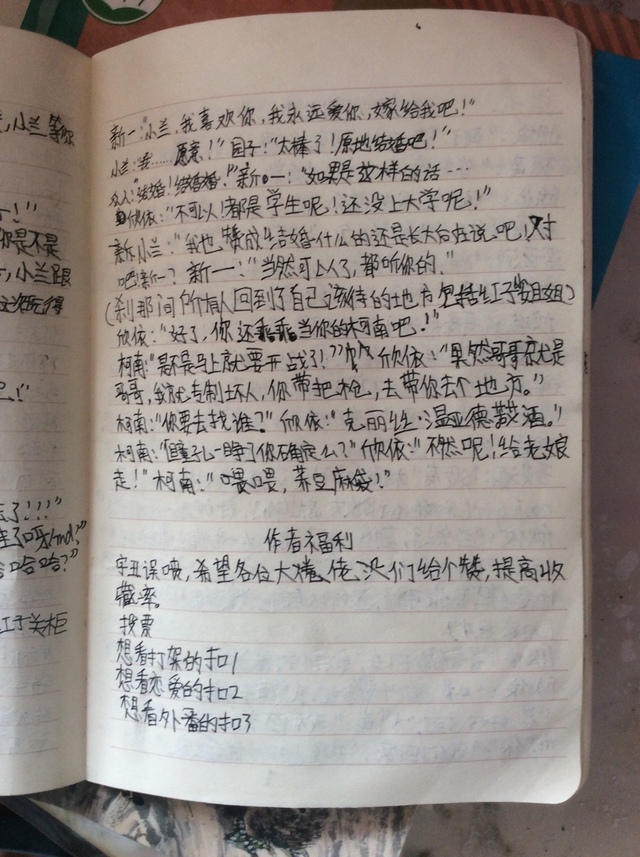 ，小兰等你
！”
你是不是
，小兰跟
！”
了！！！”
哈哈？”
新一：“小兰，我喜欢你，我永远爱你，嫁给我吧！”
小兰：我……愿意！”园子：“太棒了！原地结婚吧！”
众人：结婚！结婚！”新一：“如果是这样的话…
欣依：“不可以！都是学生呢！还没上大学呢！”
小兰：“我也赞成，结婚什么的还是长大后在说吧！对
吧！新一？新一：“当然可以了，都听你的。”
（刹那间所有人回到了自己该待的地方包括红子姐姐）
欣依：“好了，你还乖乖当你的柯南吧！”
柯南：“是不是马上就要开战了？”欣依：“果然哥哥就是
哥哥，我就专制坏人，你带把枪，去带你去个地方。”
柯南：“你要去找谁？”欣依：“克丽丝·温亚德 酒。”
柯南：“ 你确定么？”欣依：“不然呢！给老娘
走！”柯南：“喂喂，荞豆麻袋！”
作者福利
字丑误喷，希望各位大 佬、 们给个赞，提高收
藏率。
投票
想看打架的扣1
想看恋爱的扣2
想看外番的扣3